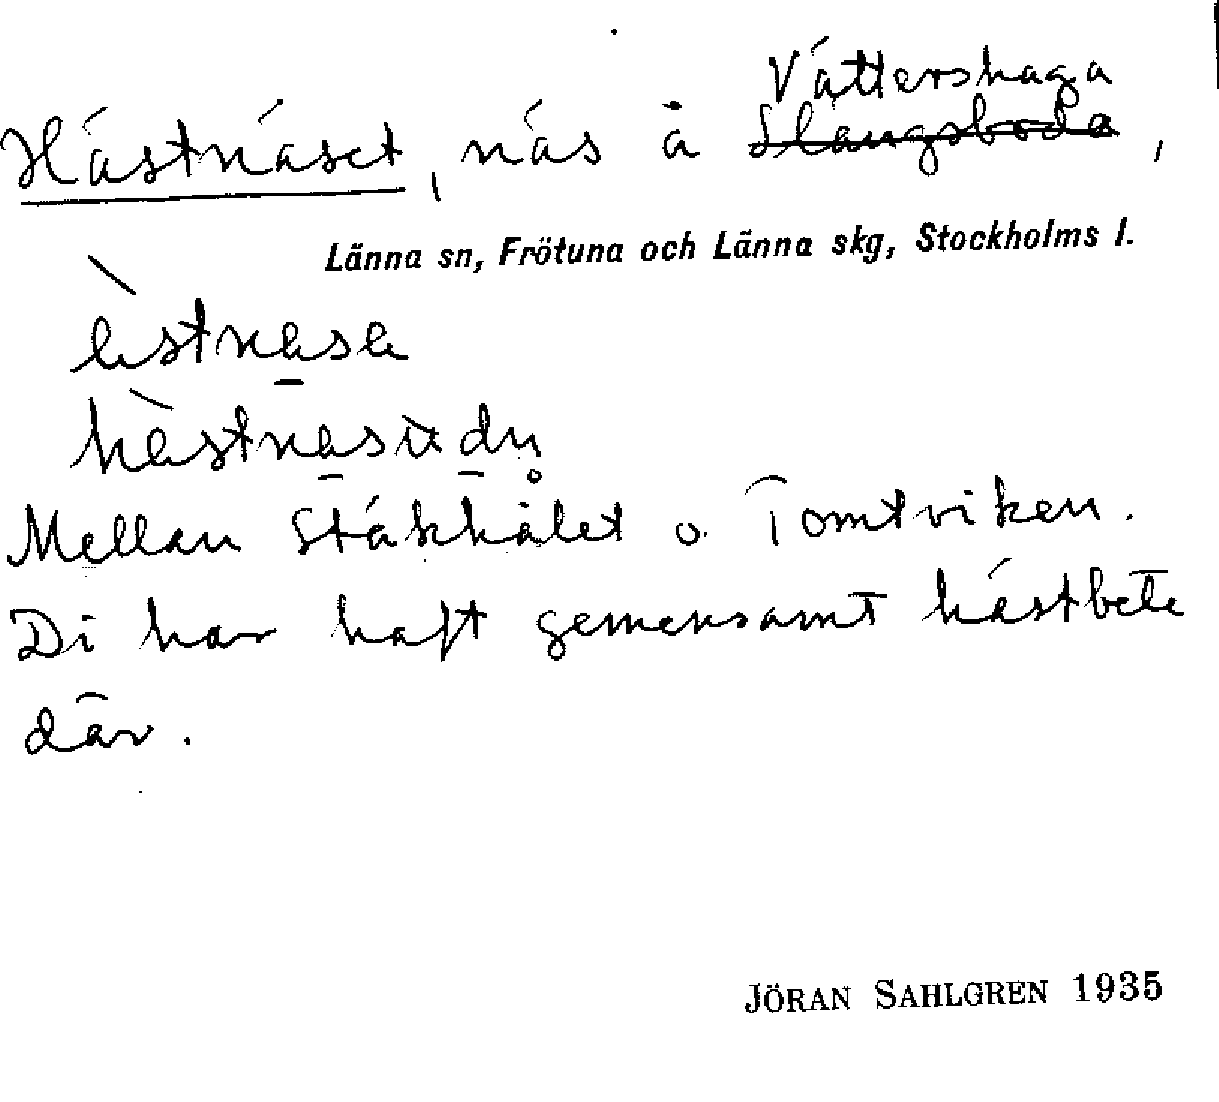 Vättershaga
Hästnäset, näs å ~~Slangsboda~~,
Länna sn, Frötuna och Länna skg, Stockholms l.
Mellan Stäkhålet o. Tomtviken.
Di har haft gemensamt hästbete
där.
JÖRAN SAHLGREN 1935